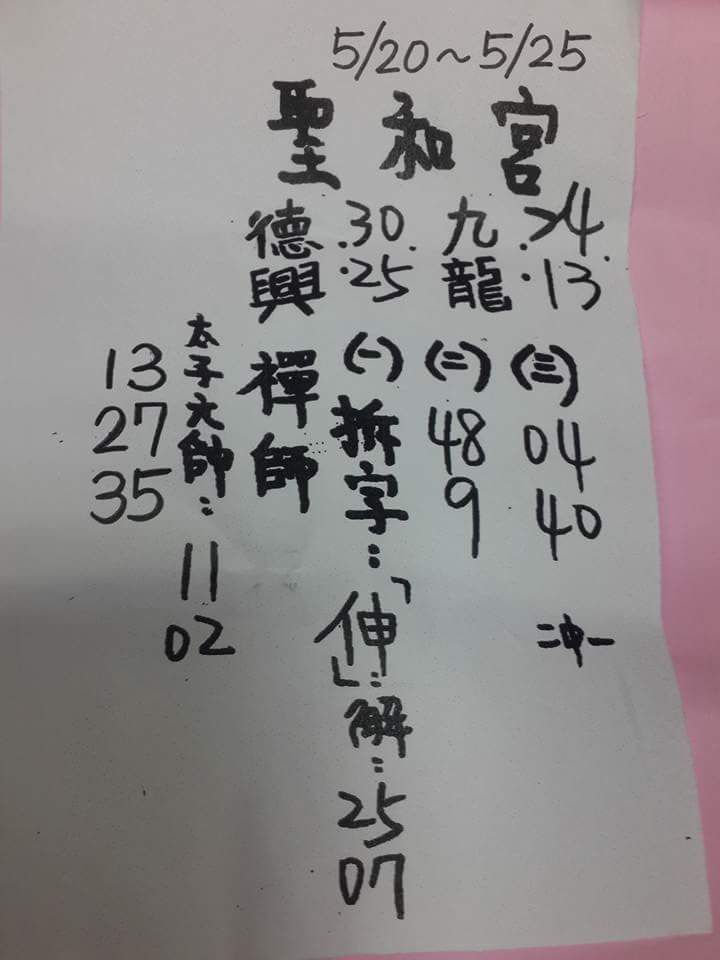 5/20～5/25
聖和宮
九龍 24. 13
德興 30. 25
(三) 04 40
二中一
(二) 48 9
(一) 拆字：「伸」：解：25 07
禪師
太子大師：11 02
13 27 35